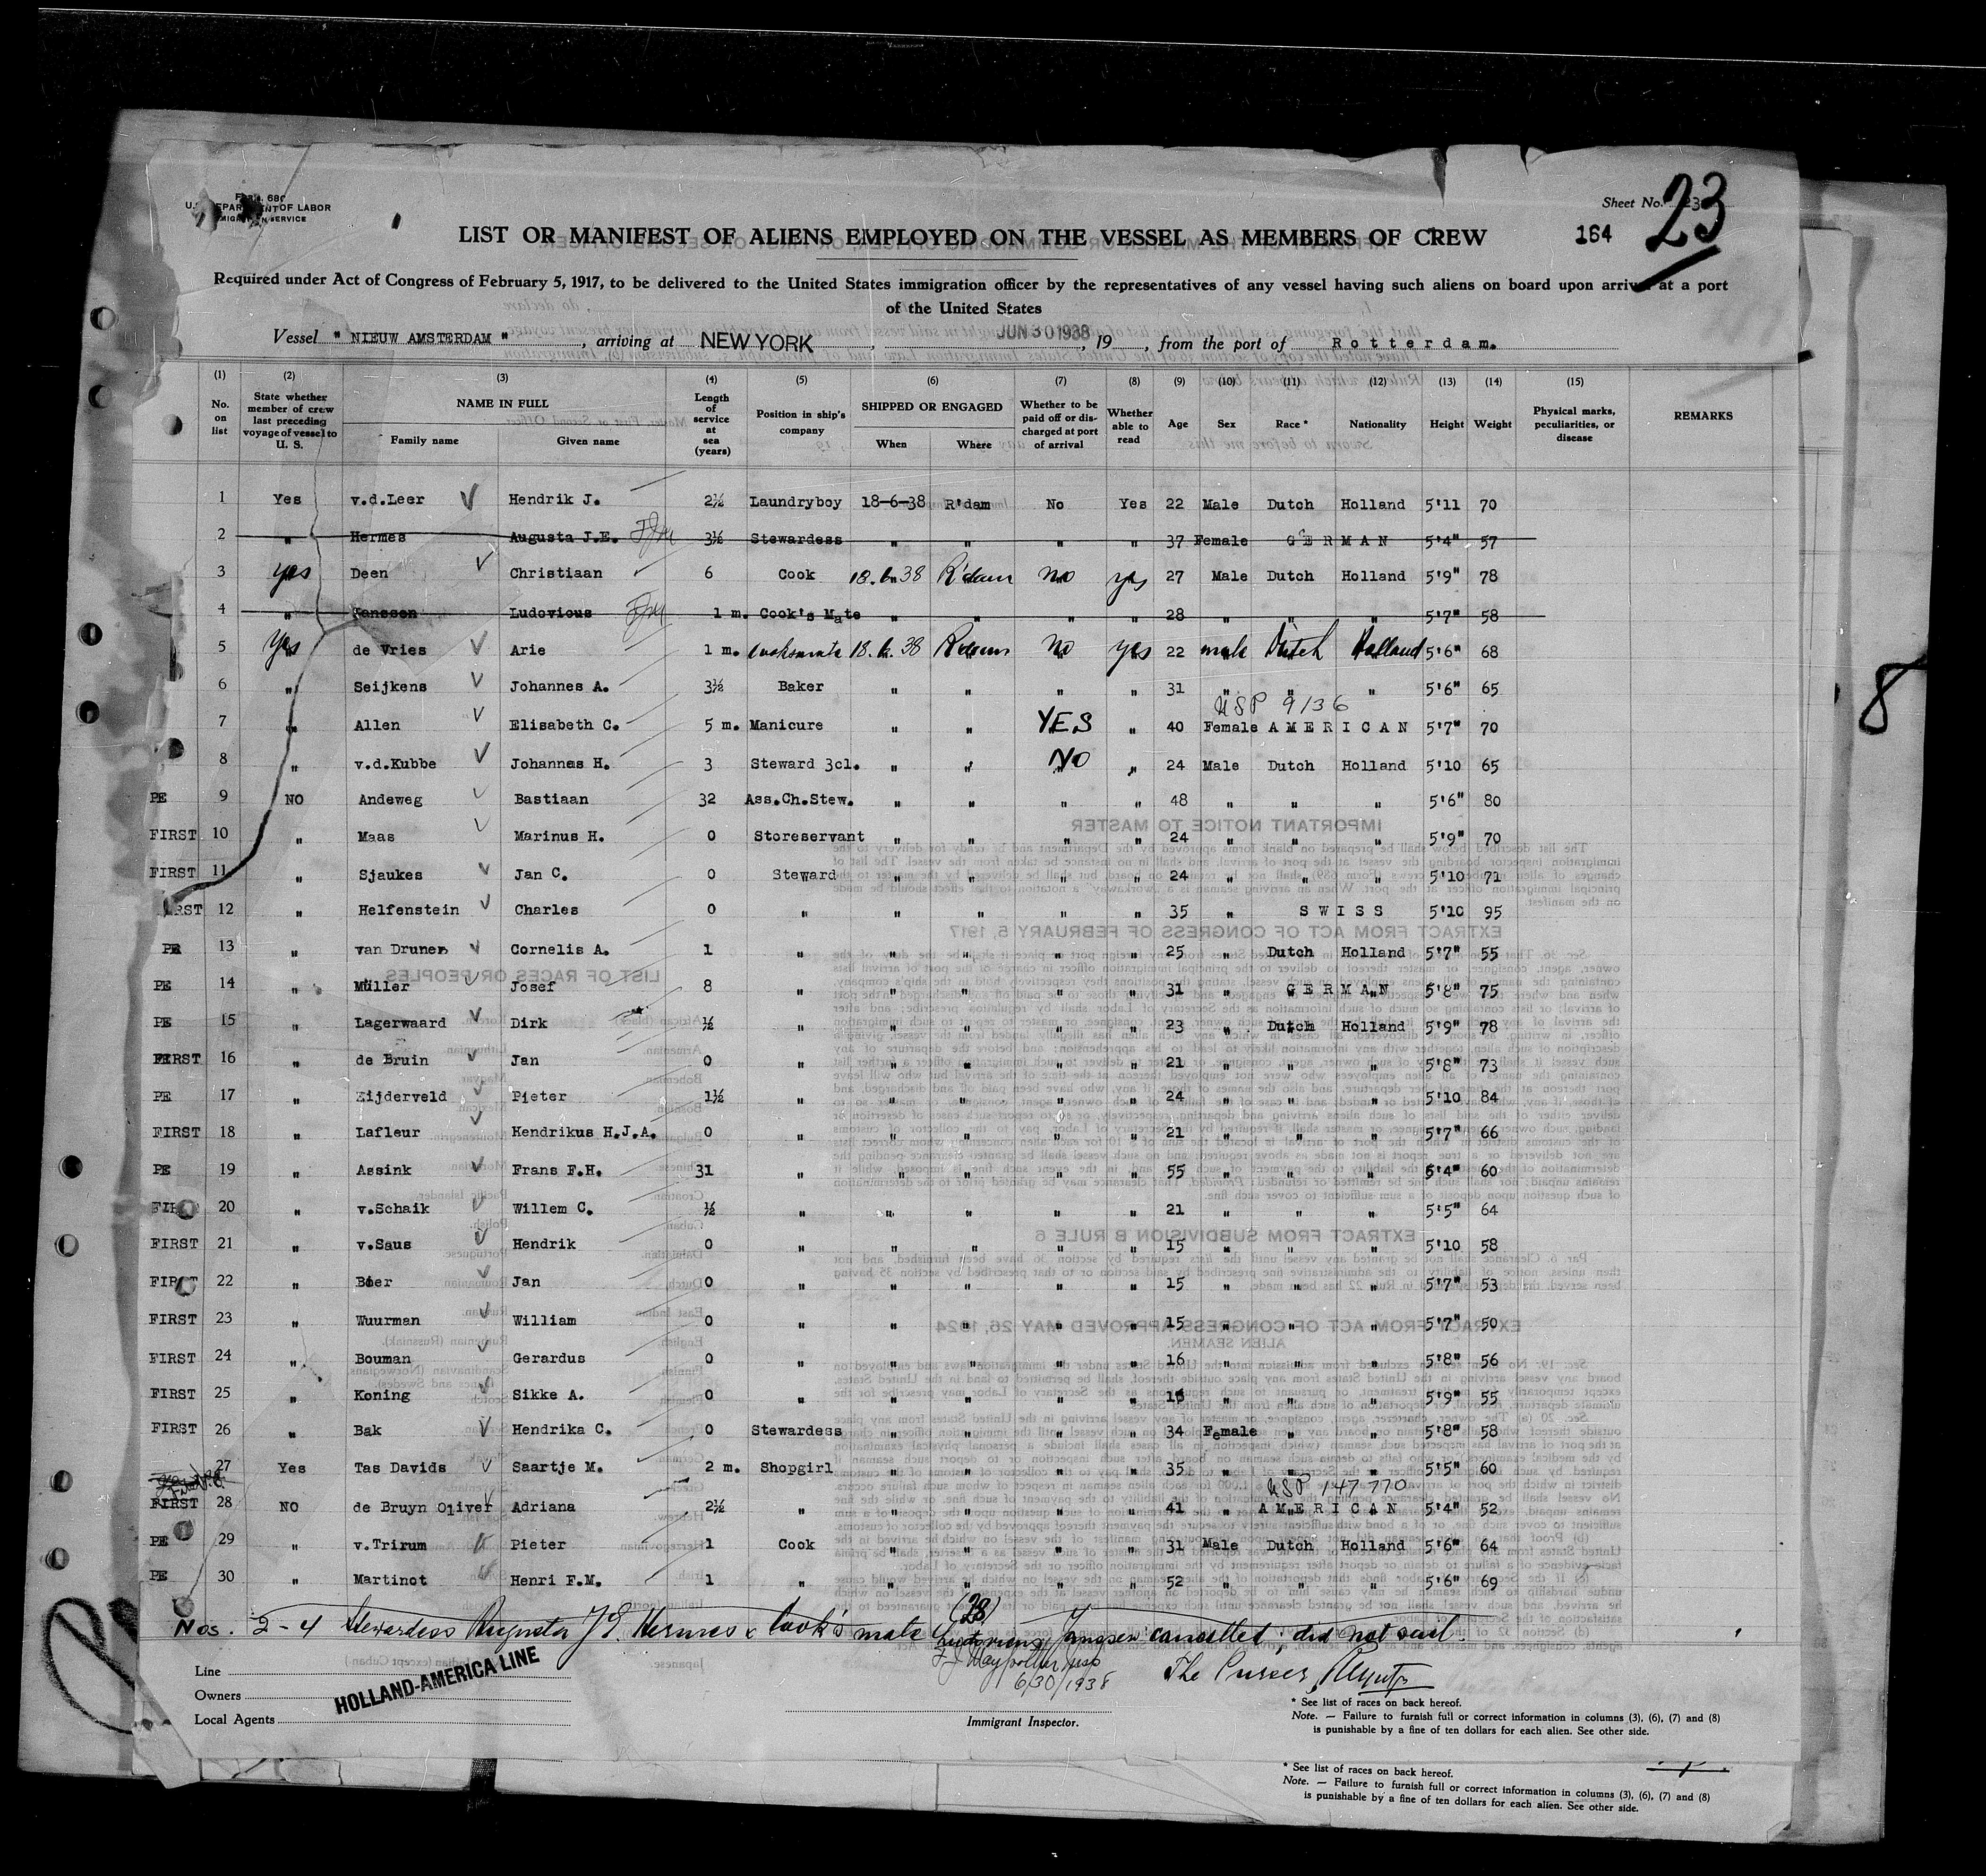 Form 680
U. S. DEPARTMENT OF LABOR
IMMIGRATION SERVICE
Sheet No. 23
23
164
LIST OR MANIFEST OF ALIENS EMPLOYED ON THE VESSEL AS MEMBERS OF CREW
Required under Act of Congress of February 5, 1917, to be delivered to the United States immigration officer by the representatives of any vessel having such aliens on board upon arrival at a port
of the United States
Vessel " NIEUW AMSTERDAM ", arriving at NEW YORK, JUN 30 1938, 19, from the port of Rotterdam.
(1) (2) (3) (4) (5) (6) (7) (8) (9) (10) (11) (12) (13) (14) (15)
No. on list State whether member of crew last preceding voyage of vessel to U. S. NAME IN FULL Family name Given name Length of service at sea (years) Position in ship's company SHIPPED OR ENGAGED When Where Whether to be paid off or discharged at port of arrival Whether able to read Age Sex Race * Nationality Height Weight Physical marks, peculiarities, or disease REMARKS
1 Yes v.d.Leer Hendrik J. 2½ Laundryboy 18-6-38 R'dam No Yes 22 Male Dutch Holland 5'11 70
2 " Hermes Augusta J.E. 3½ Stewardess " " " " 37 Female GERMAN 5'4" 57
3 yes Deen Christiaan 6 Cook 18.6.38 R'dam no yes 27 Male Dutch Holland 5'9" 78
4 " Janssen Ludovious 1 m. Cook's Mate " " " " 28 " " " 5'7" 58
5 Yes de Vries Arie 1 m. Cooksmate 18.6.38 R'dam no yes 22 male Dutch Holland 5'6" 68
6 " Seijkens Johannes A. 3½ Baker " " " " 31 " " " 5'6" 65
USP 9136
7 " Allen Elisabeth C. 5 m. Manicure " " YES " 40 Female AMERICAN 5'7" 70
8 " v.d.Kubbe Johannes H. 3 Steward 3cl. " " NO " 24 Male Dutch Holland 5'10 65
PE 9 NO Andeweg Bastiaan 32 Ass.Ch.Stew. " " " " 48 " " " 5'6" 80
FIRST 10 " Maas Marinus H. 0 Storeservant " " " " 24 " " " 5'9" 70
FIRST 11 " Sjaukes Jan C. 0 Steward " " " " 24 " " " 5'10 71
FIRST 12 " Helfenstein Charles 0 " " " " " 35 " SWISS 5'10 95
PE 13 " van Drunen Cornelis A. 1 " " " " " 25 " Dutch Holland 5'7" 55
PE 14 " Müller Josef 8 " " " " " 31 " GERMAN 5'8" 75
PE 15 " Lagerwaard Dirk ½ " " " " " 23 " Dutch Holland 5'9" 78
FIRST 16 " de Bruin Jan 0 " " " " " 21 " " " 5'8" 73
PE 17 " Eijderveld Pieter 1½ " " " " " 24 " " " 5'10 84
FIRST 18 " Lafleur Hendrikus H.J.A. 0 " " " " " 21 " " " 5'7" 66
PE 19 " Assink Frans F.H. 31 " " " " " 55 " " " 5'4" 60
FIRST 20 " v.Schaik Willem C. ½ " " " " " 21 " " " 5'5" 64
FIRST 21 " v.Saus Hendrik 0 " " " " " 15 " " " 5'10 58
FIRST 22 " Boer Jan 0 " " " " " 15 " " " 5'7" 53
FIRST 23 " Wuurman William 0 " " " " " 15 " " " 5'7" 50
FIRST 24 " Bouman Gerardus 0 " " " " " 16 " " " 5'8" 56
FIRST 25 " Koning Sikke A. 0 " " " " " " " " 5'9" 55
FIRST 26 " Bak Hendrika C. 0 Stewardess " " " " 34 Female " " 5'8" 58
27 Yes Tas Davids Saartje M. 2 m. Shopgirl " " " " 35 " " " 5'5" 60
USP 147770
FIRST 28 NO de Bruyn Oliver Adriana 2½ " " " " " 41 " AMERICAN 5'4" 52
PE 29 " v.Trirum Pieter 1 Cook " " " " 31 Male Dutch Holland 5'6" 64
PE 30 " Martinot Henri F.M. 1 " " " " " 52 " " " 5'6" 69
(28)
Nos. 2-4 Stewardess Augusta J E. Hermes & Cook's mate Ludovious Janssen cancelled; did not sail.
6/30/1938
The Purser,
Line
Owners
Local Agents
HOLLAND-AMERICA LINE
Immigrant Inspector.
* See list of races on back hereof.
Note. — Failure to furnish full or correct information in columns (3), (6), (7) and (8)
is punishable by a fine of ten dollars for each alien. See other side.
* See list of races on back hereof.
Note. — Failure to furnish full or correct information in columns (3), (6), (7) and (8)
is punishable by a fine of ten dollars for each alien. See other side.
8